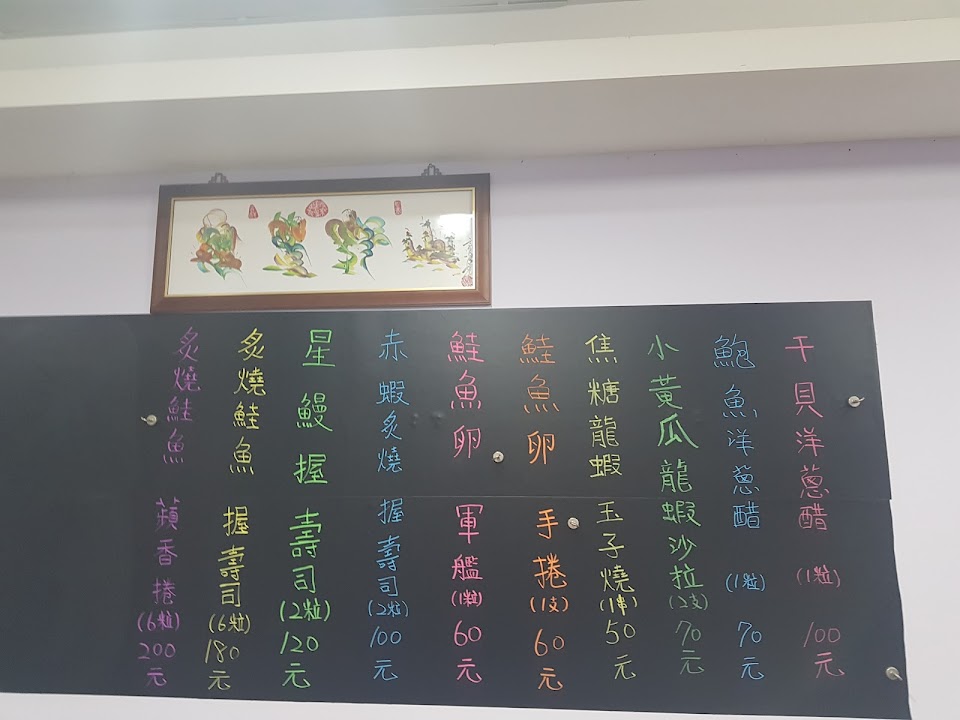 干貝洋蔥醋(1粒)100元
鮑魚洋蔥醋(1粒)70元
小黃瓜龍蝦沙拉(2支)70元
焦糖龍蝦玉子燒(1串)50元
鮭魚卵手捲(1支)60元
鮭魚卵軍艦(1粒)60元
赤蝦炙燒握壽司(2粒)100元
星鰻握壽司(2粒)120元
炙燒鮭魚握壽司(6粒)180元
炙燒鮭魚蘋香捲(6粒)200元